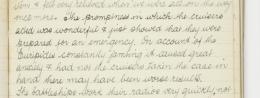 him & felt very relieved when we were all on the way
once more. The promptness in which the cruisers
acid was wonderful & just showed that they were
prepared for an emergency. On account of the
Euripides constantly janking it caused great
anxiety & had not the cruisers taken the case in
hand there may have been worse results.
The battleships work their radios very quickly, not